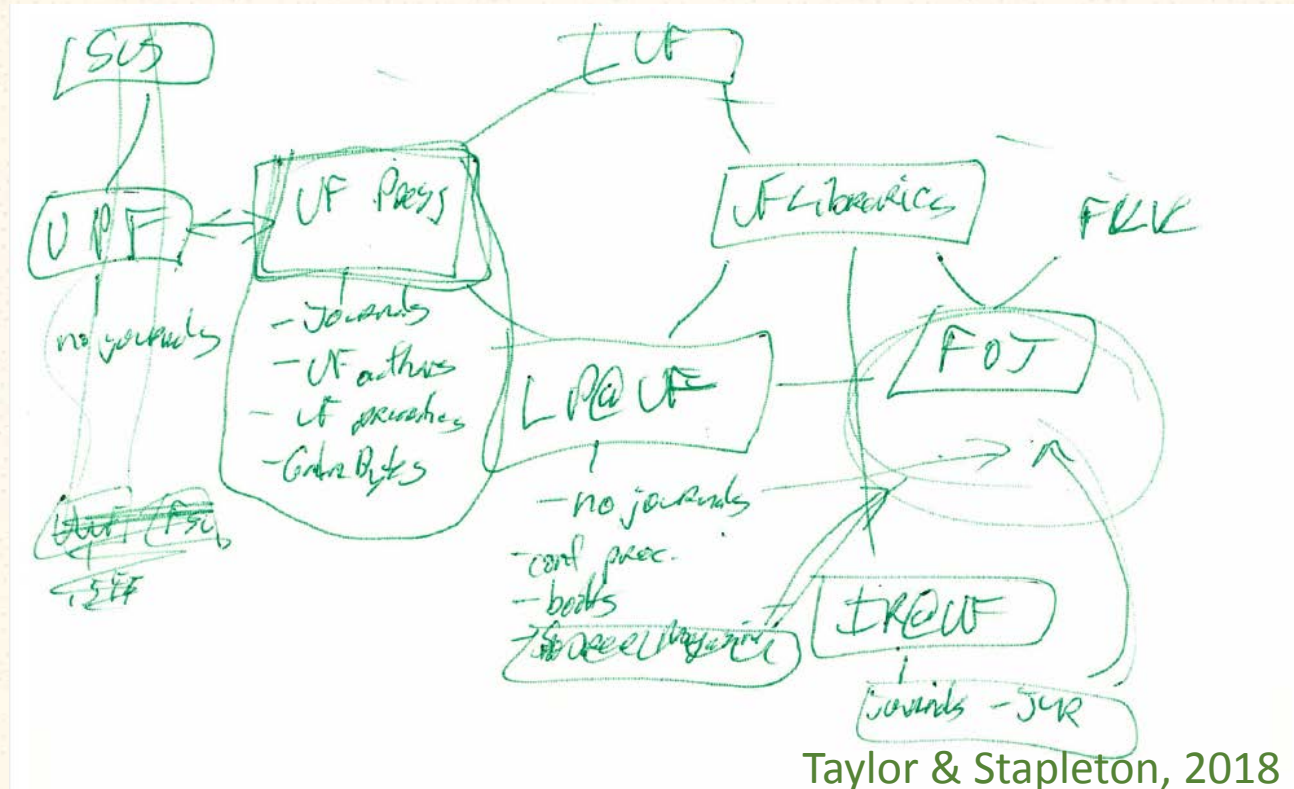 SUS
UF
UPF
UF Press
UF Libraries
no journals
- Journals
- UF authors
- UF
-
LP@UF
FOJ
- no journals
- conf proc.
- books
IR@UF
journals - JUR
Taylor & Stapleton, 2018